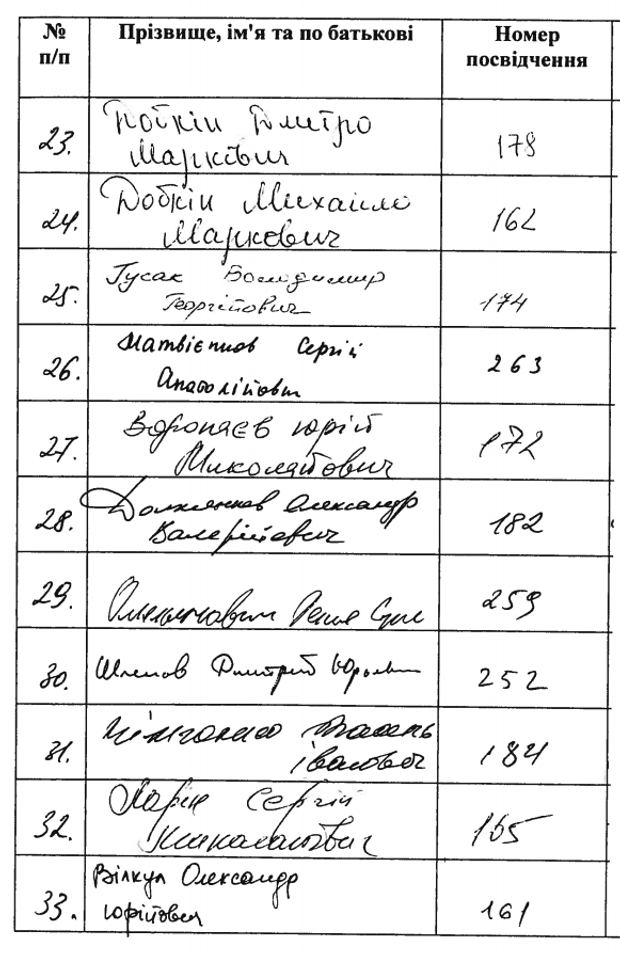 № п/п Прізвище, ім'я та по батькові Номер посвідчення
23. Добкін Дмитро
Маркович 178
24. Добкін Михайло
Маркович 162
25. Гусак Володимир
Георгійович 174
26. Матвієнков Сергій
Анатолійович 263
27. Воропаєв Юрій
Миколайович 172
28. Долженков Олександр
Валерійович 182
29. 259
30. Шпенов Дмитрий Юрьевич 252
31. Василь
Іванович 184
32. Ларін Сергій
Миколайович 165
33. Вілкул Олександр
Юрійович 161